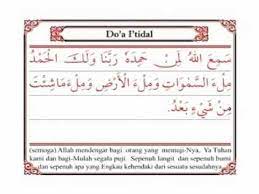 Do'a I'tidal
سَمِعَ اللهُ لِمَنْ حَمِدَهُ رَبَّنَا وَلَكَ الْحَمْدُ
مِلْءَ السَّمٰوَاتِ وَمِلْءَ الْأَرْضِ وَمِلْءَ مَاشِئْتَ
مِنْ شَيْءٍ بَعْدُ.
(semoga) Allah mendengar bagi orang yang memuji-Nya, Ya Tuhan
kami dan bagi-Mulah segala puji. Sepenuh langit dan sepenuh bumi
dan sepenuh apa yang Engkau kehendaki dari sesuatu sesudahnya.